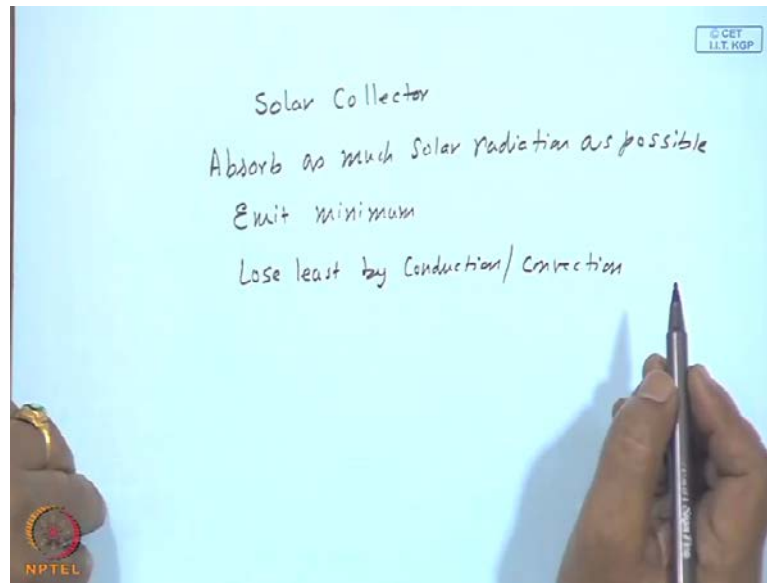 © CET
I.I.T. KGP
Solar Collector
Absorb as much Solar radiation as possible
Emit minimum
Lose least by Conduction/Convection
NPTEL